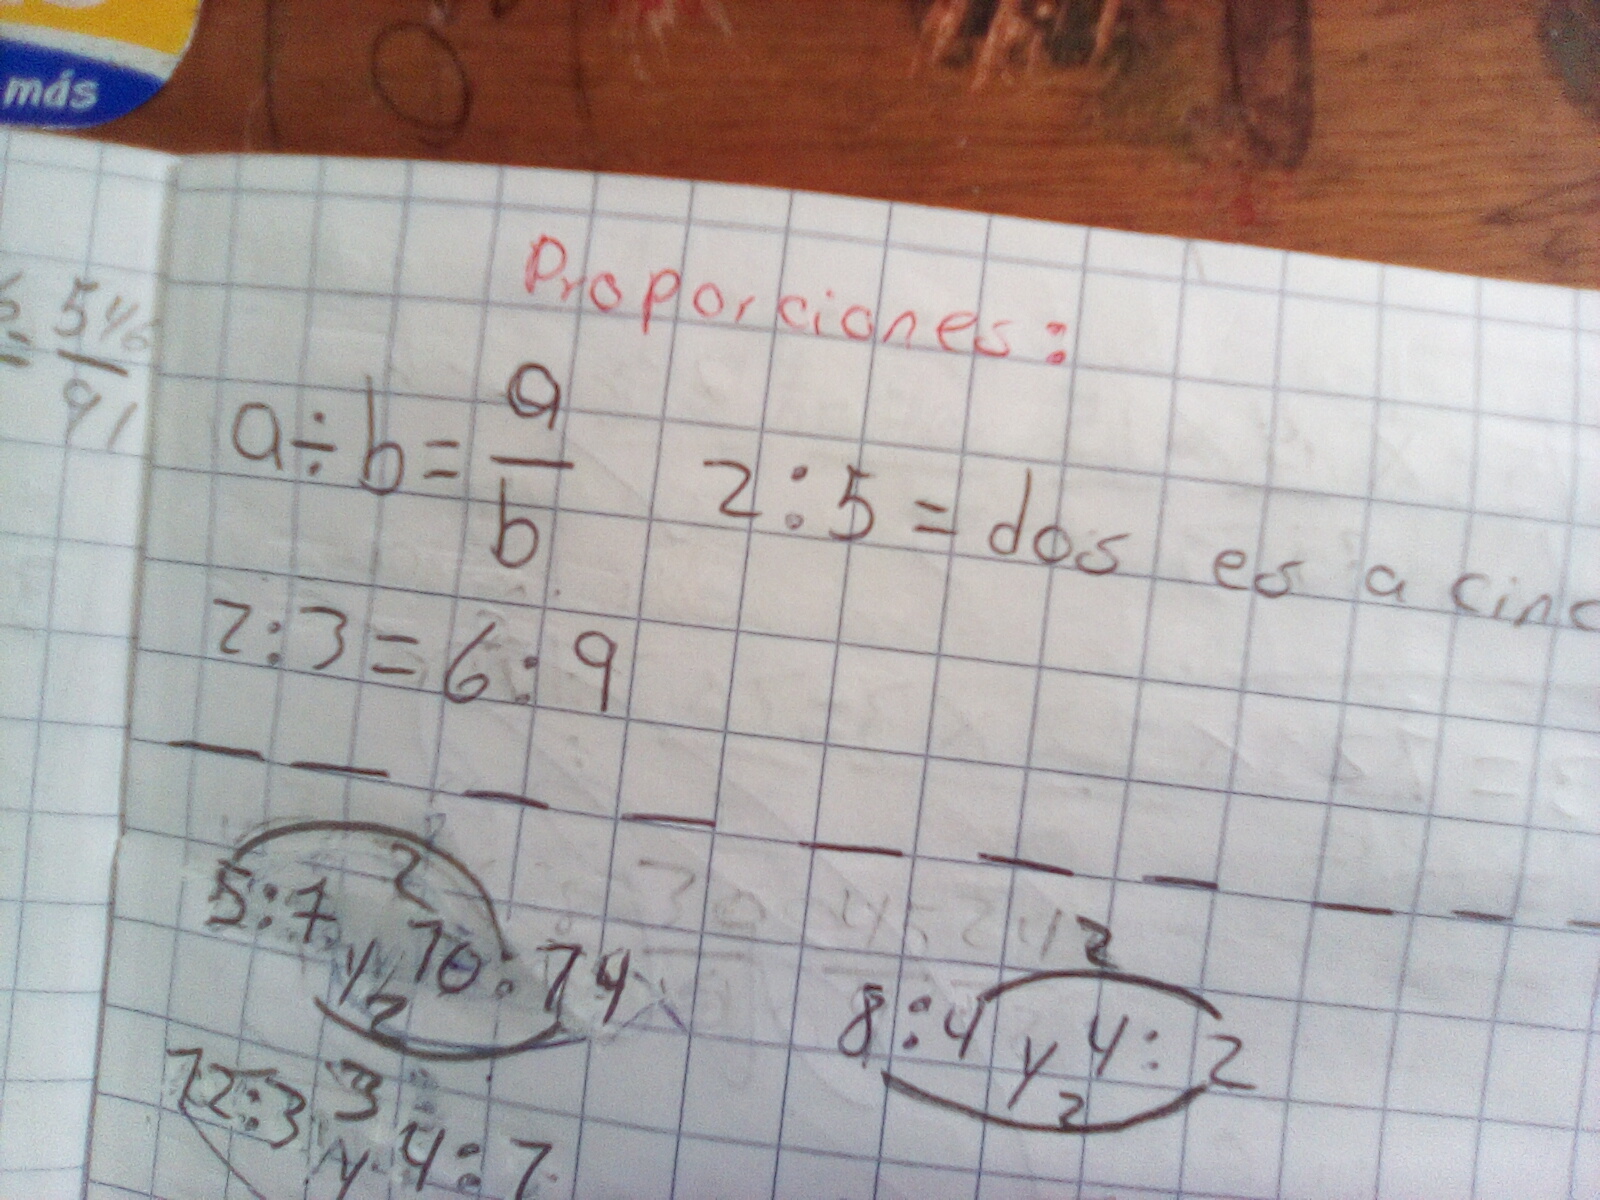 más
546
91
Proporciones:
a÷b = a/b 2:5 = dos es a cinc
2:3 = 6:9
2
5:7 y 10:14
2
2
8:4 y 4:2
2
3
12:3 y 4:1